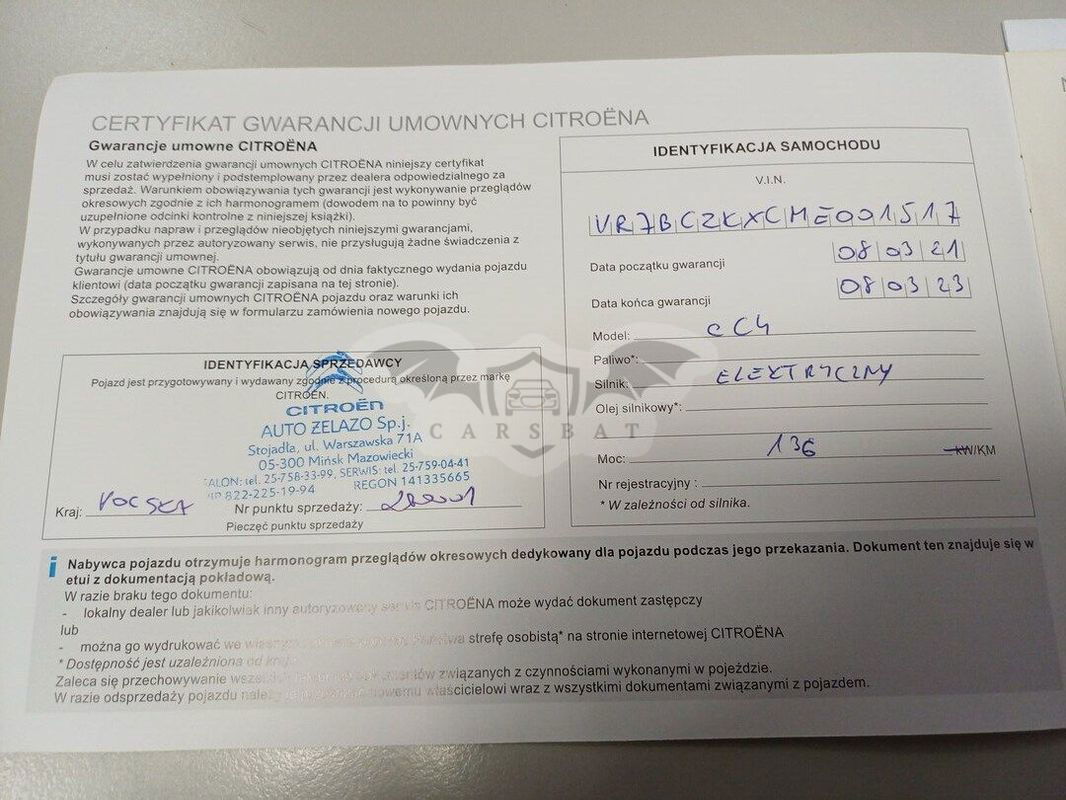 CERTYFIKAT GWARANCJI UMOWNYCH CITROËNA
Gwarancje umowne CITROËNA
W celu zatwierdzenia gwarancji umownych CITROËNA niniejszy certyfikat
musi zostać wypełniony i podstemplowany przez dealera odpowiedzialnego za
sprzedaż. Warunkiem obowiązywania tych gwarancji jest wykonywanie przeglądów
okresowych zgodnie z ich harmonogramem (dowodem na to powinny być
uzupełnione odcinki kontrolne z niniejszej książki).
W przypadku napraw i przeglądów nieobjętych niniejszymi gwarancjami,
wykonywanych przez autoryzowany serwis, nie przysługują żadne świadczenia z
tytułu gwarancji umownej.
Gwarancje umowne CITROËNA obowiązują od dnia faktycznego wydania pojazdu
klientowi (data początku gwarancji zapisana na tej stronie).
Szczegóły gwarancji umownych CITROËNA pojazdu oraz warunki ich
obowiązywania znajdują się w formularzu zamówienia nowego pojazdu.
IDENTYFIKACJA SPRZEDAWCY
Pojazd jest przygotowywany i wydawany zgodnie z procedurą określoną przez markę
CITROËN.
CITROËN
AUTO ŻELAZO Sp.j.
Stojadła, ul. Warszawska 71A
05-300 Mińsk Mazowiecki
SALON: tel. 25-758-33-99, SERWIS: tel. 25-759-04-41
NIP 822-225-19-94 REGON 141335665
Kraj: Nr punktu sprzedaży:
Pieczęć punktu sprzedaży
IDENTYFIKACJA SAMOCHODU
V.I.N.
VR7BCZKXCME001517
Data początku gwarancji 08 03 21
Data końca gwarancji 08 03 23
Model: eC4
Paliwo*:
Silnik: ELEKTRYCZNY
Olej silnikowy*:
Moc: 136 kW/KM
Nr rejestracyjny :
* W zależności od silnika.
CARSBAT
i Nabywca pojazdu otrzymuje harmonogram przeglądów okresowych dedykowany dla pojazdu podczas jego przekazania. Dokument ten znajduje się w
etui z dokumentacją pokładową.
W razie braku tego dokumentu:
- lokalny dealer lub jakikolwiek inny autoryzowany serwis CITROËNA może wydać dokument zastępczy
lub
- można go wydrukować we strefę osobistą* na stronie internetowej CITROËNA
* Dostępność jest uzależniona od kraju.
Zaleca się przechowywanie związanych z czynnościami wykonanymi w pojeździe.
W razie odsprzedaży pojazdu należy nowemu właścicielowi wraz z wszystkimi dokumentami związanymi z pojazdem.